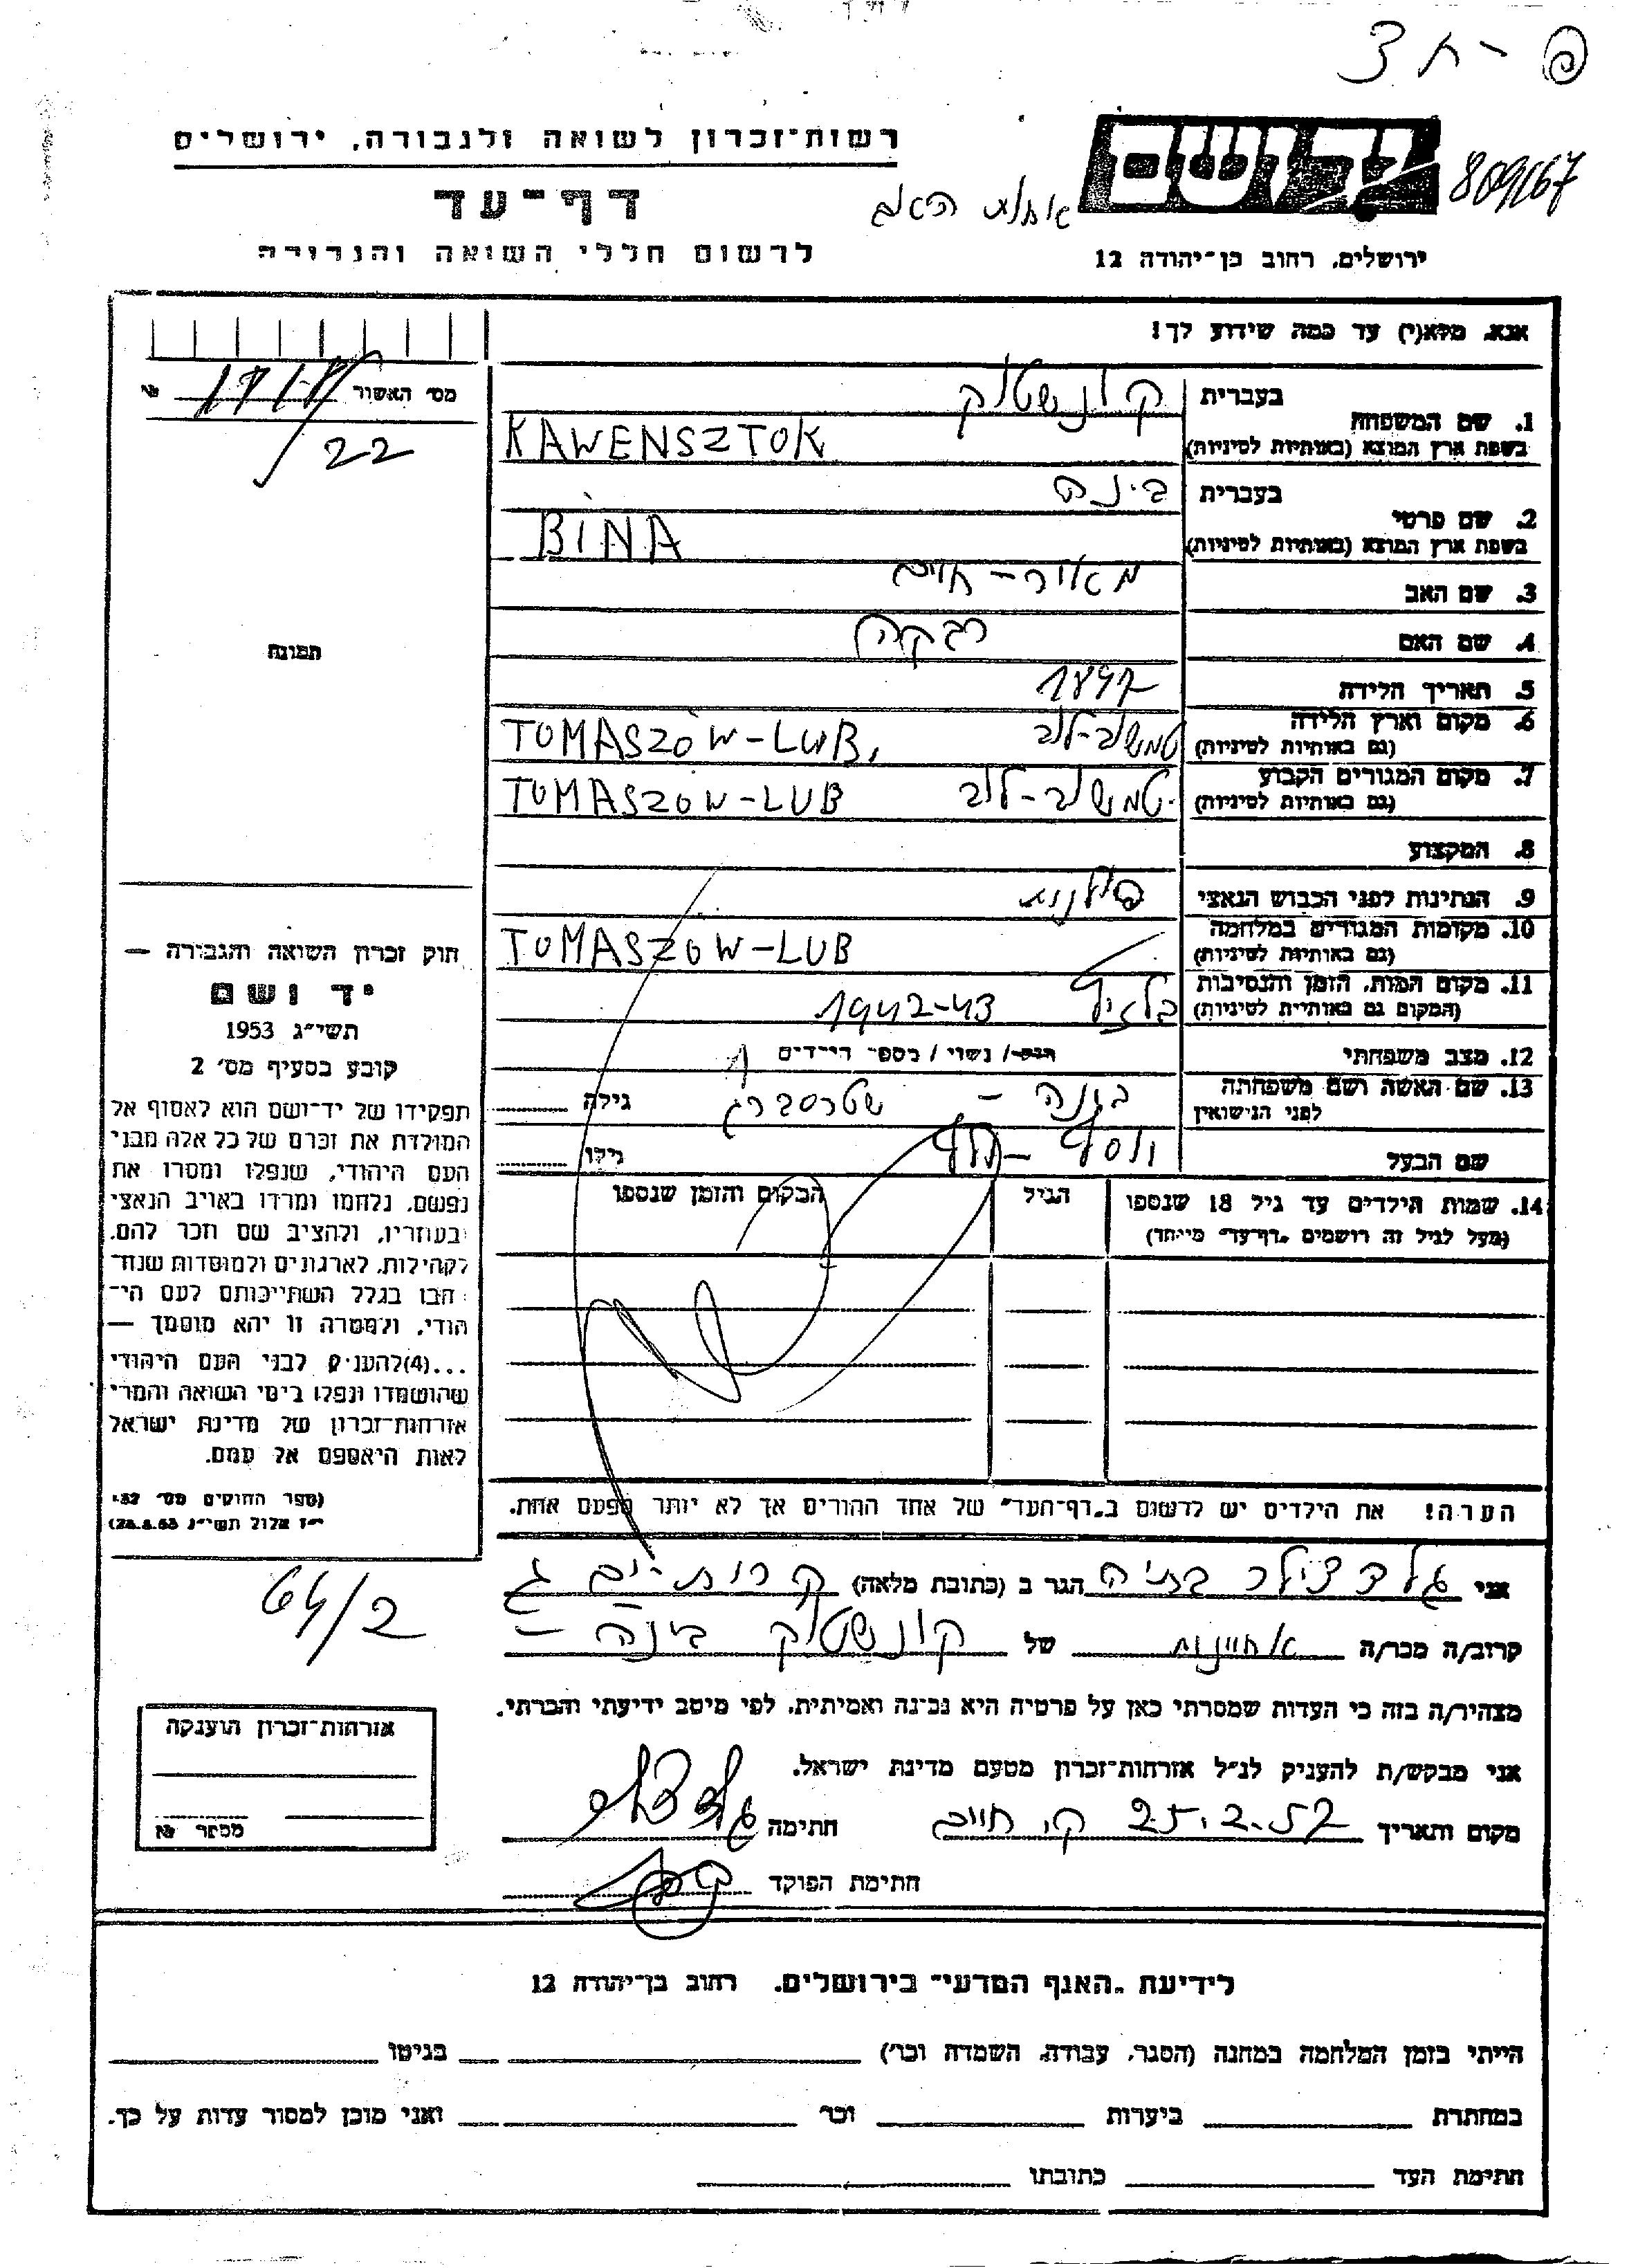 רשות־זכרון לשואה ולגבורה, ירושלים
דף־עד
לרשום חללי השואה והגבורה
יד ושם
809167
ירושלים, רחוב בן־יהודה 12
אנא, מלא(י) עד כמה שידוע לך!
מס׳ האשור
22
תמונה
בעברית קונשטוק
1. שם המשפחה
בשפת ארץ המוצא (באותיות לטיניות) KAWENSZTOK
בעברית בינה
2. שם פרטי
בשפת ארץ המוצא (באותיות לטיניות) BINA
3. שם האב מאיר-חיים
4. שם האם רבקה
5. תאריך הלידה 1897
6. מקום וארץ הלידה
(גם באותיות לטיניות) טמשוב-לוב TOMASZÓW-LUB,
7. מקום המגורים הקבוע
(גם באותיות לטיניות) טמשוב-לוב TOMASZÓW-LUB
8. המקצוע
9. הנתינות לפני הכבוש הנאצי פולנית
10. מקומות המגורים במלחמה
(גם באותיות לטיניות) TOMASZOW-LUB
11. מקום המות, הזמן והנסיבות
(המקום גם באותיות לטיניות) 1942-43
12. מצב משפחתי רווק / נשוי / מספר הילדים 1
13. שם האשה ושם משפחתה
לפני הנישואין בינה - שטרסברג גילה
שם הבעל גילו
14. שמות הילדים עד גיל 18 שנספו הגיל המקום והזמן שנספו
(מעל לגיל זה רושמים „דף־עד״ מיוחד)
הערה! את הילדים יש לרשום ב„דף־העד״ של אחד ההורים אך לא יותר מפעם אחת.
חוק זכרון השואה והגבורה —
יד ושם
תשי״ג 1953
קובע בסעיף מס׳ 2
תפקידו של יד־ושם הוא לאסוף אל
המולדת את זכרם של כל אלה מבני
העם היהודי, שנפלו ומסרו את
נפשם, נלחמו ומרדו באויב הנאצי
ובעוזריו, ולהציב שם וזכר להם,
לקהילות, לארגונים ולמוסדות שנח־
רבו בגלל השתייכותם לעם הי־
הודי, ולמטרה זו יהא מוסמך —
...(4)להעניק לבני העם היהודי
שהושמדו ונפלו בימי השואה והמרי
אזרחות־זכרון של מדינת ישראל
לאות היאספם אל עמם.
(ספר החוקים מס׳ 132,
י״ז אלול תשי״ג 28.8.53)
64/2
אני הגר ב (כתובת מלאה)
קרוב/ה מכר/ה אחיינית של קונשטוק בינה -
מצהיר/ה בזה כי העדות שמסרתי כאן על פרטיה היא נכונה ואמיתית, לפי מיטב ידיעתי והכרתי.
אני מבקש/ת להעניק לנ״ל אזרחות־זכרון מטעם מדינת ישראל.
מקום ותאריך 25.2.57 ק. חיים חתימה
חתימת הפוקד
אזרחות־זכרון הוענקה
מספר
לידיעת „האגף המדעי״ בירושלים. רחוב בן־יהודה 12
הייתי בזמן המלחמה במחנה (הסגר, עבודה, השמדה וכו׳) בגיטו
במחתרת ביערות וכו׳ ואני מוכן למסור עדות על כך.
חתימת העד כתובתו